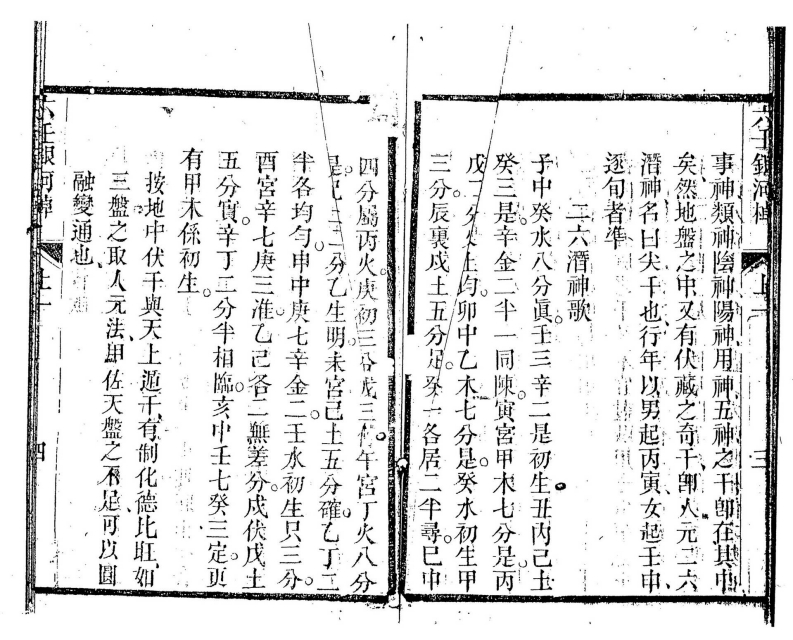 六壬銀河棹
上
三
事神類神陰神陽神用神五神之干卽在其中
矣然地盤之中又有伏藏之奇干卽人元二六
潛神名曰尖干也行年以男起丙寅女起壬申
逐旬者準
二六潛神歌
子中癸水八分眞。壬三辛二是初生丑丙己土
癸三是辛金二半一同陳寅宮甲木七分是丙
戊一分火土均卯中乙木七分是。癸水初生甲
三分辰裏戊土五分足。癸各居二半尋。巳中
四分屬丙火。庚初三分戊三午宮丁火八分
是己二分乙生明未宮己土五分確。乙丁二
半各均勻。申中庚七辛金二壬水初生只三分。
酉宮辛七庚三准。乙己各二無差分。戌伏戊土
五分實。辛丁二分半相臨。亥中壬七癸三定更
有甲木係初生。
按地中伏干與天上遁干有制化德比旺如
三盤之取人元法用佐天盤之不足可以圓
融變通也
六壬銀河棹
上
四